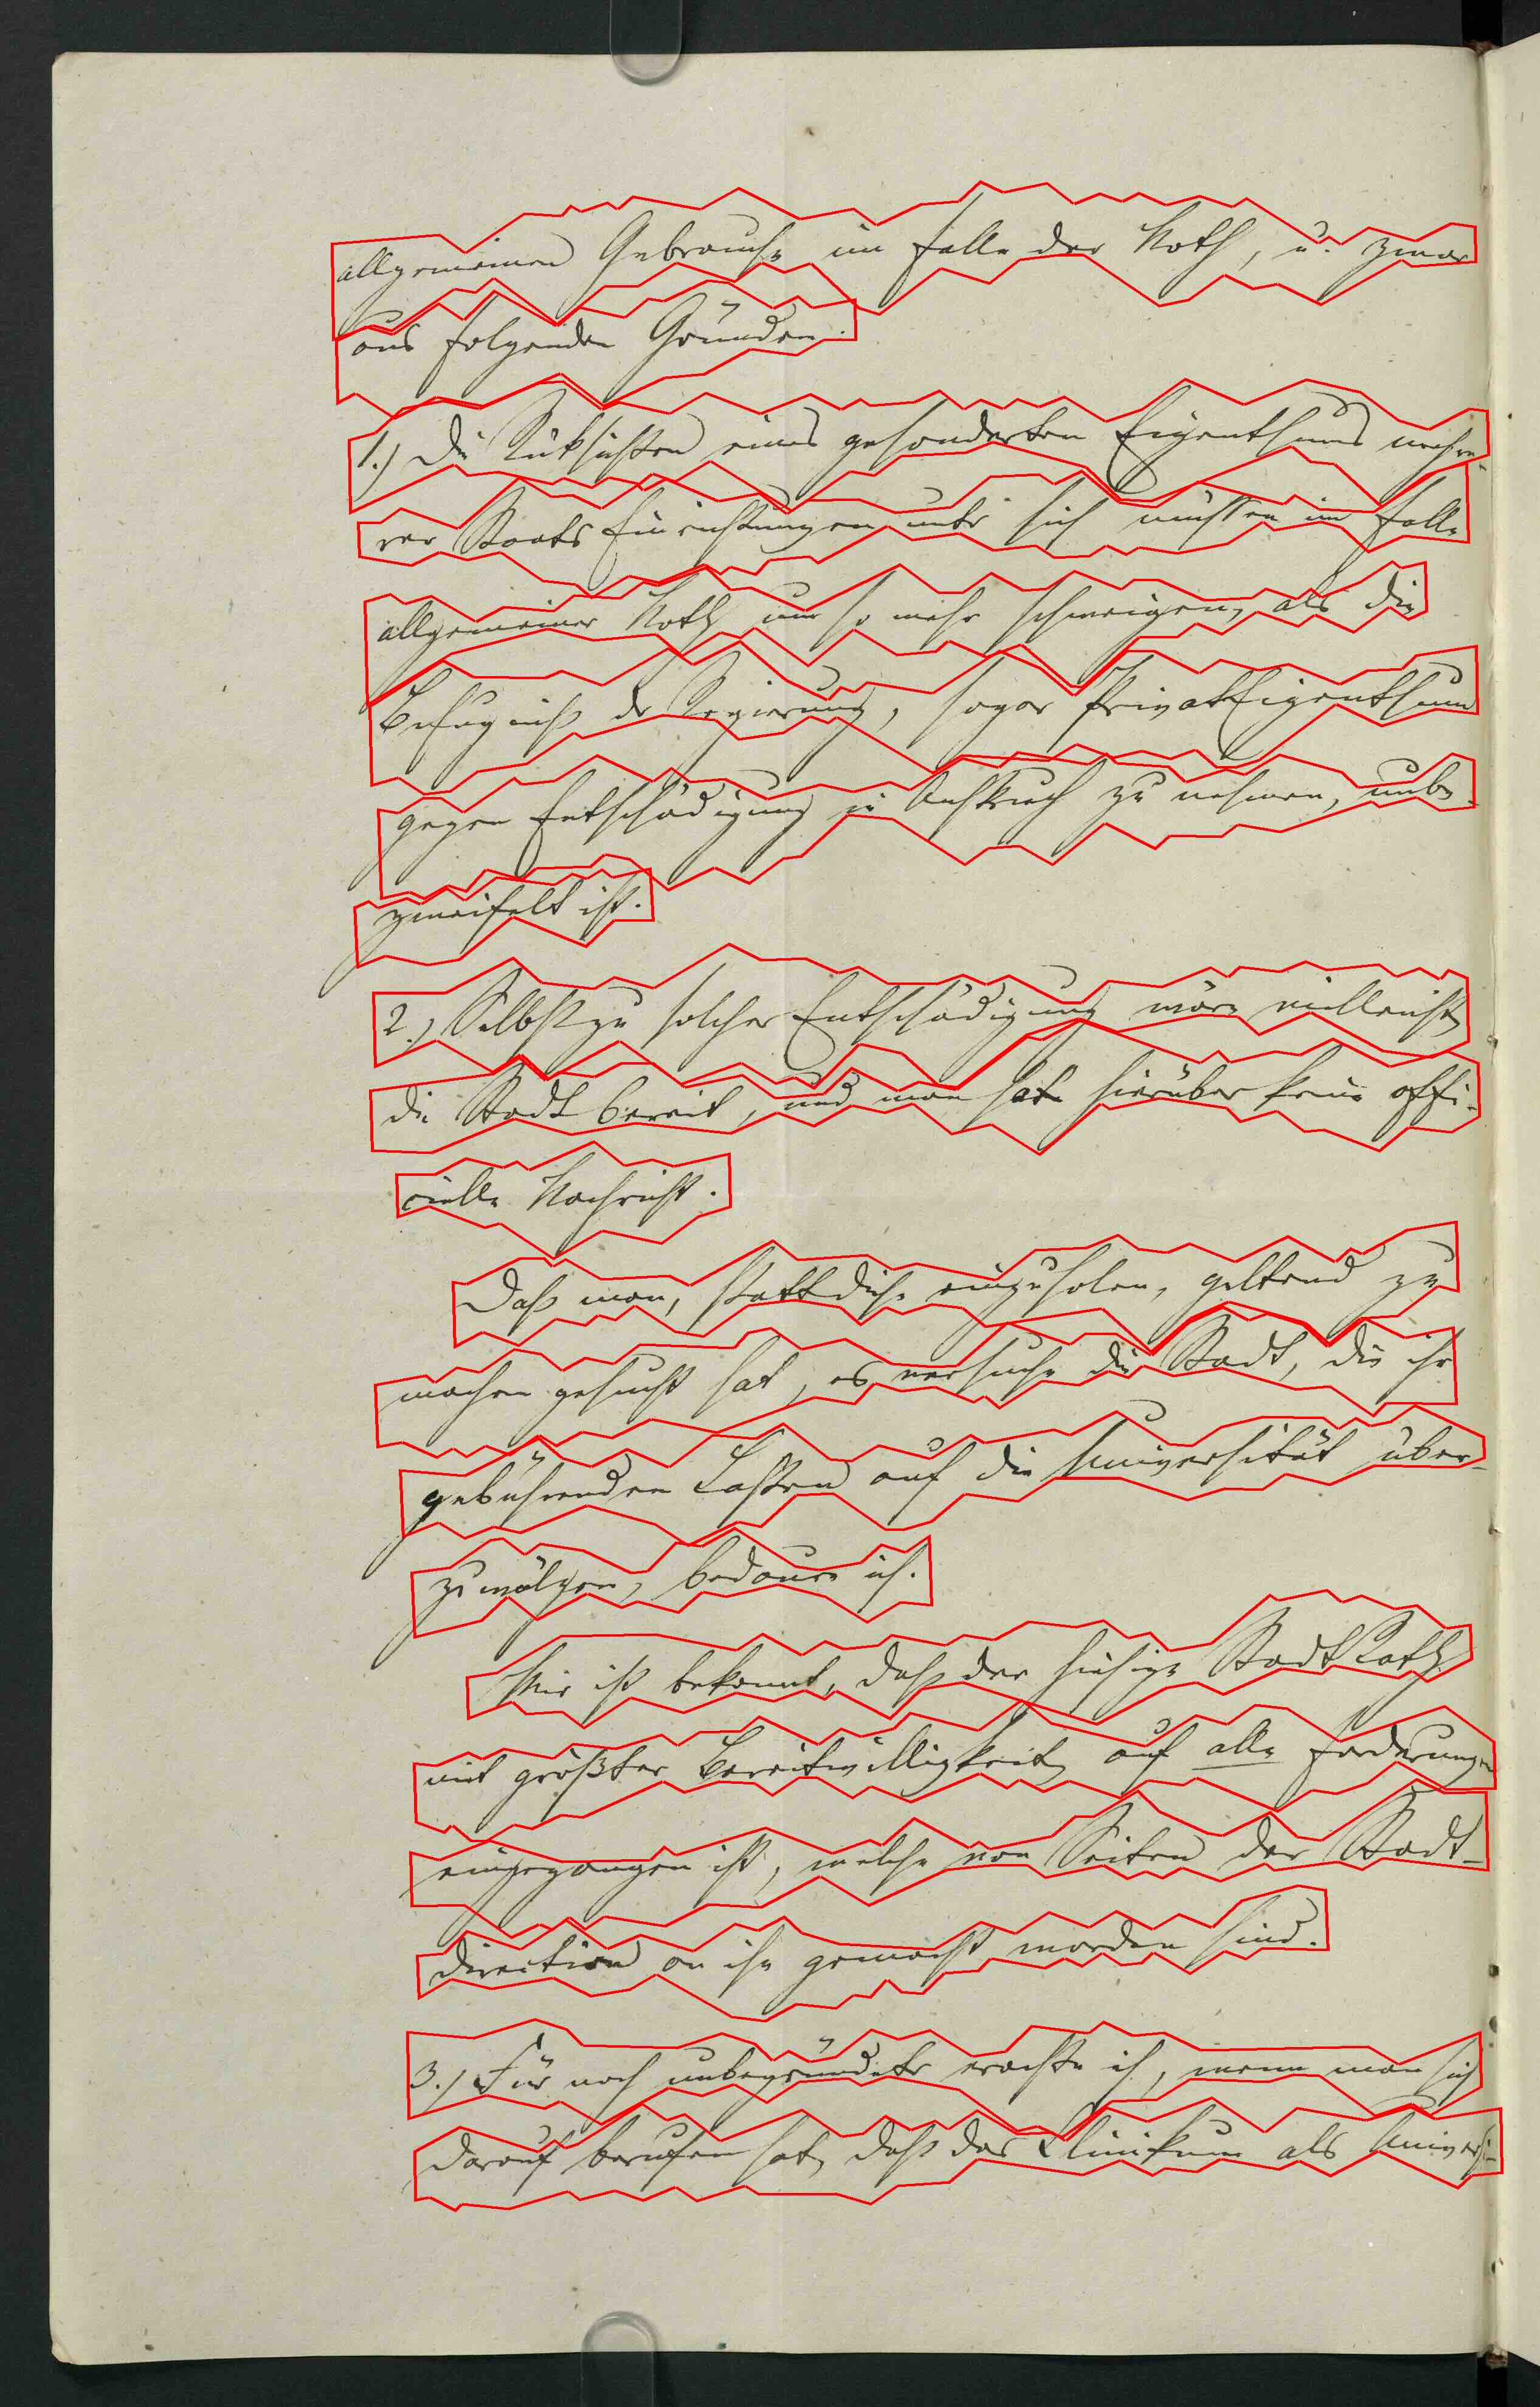 allgemeinen Gebrauche im Falle der Noth, u. zwar
aus folgenden Gründen.
1.) Die Rüksichten eines gesonderten Eigenthums mehre-
rer Staats Einrichtungen unter sich müssen im Falle
allgemeiner Noth um so mehr schweigen, als die
Befugniß der Regierung, sogar PrivatEigenthum
gegen Entschädigung in Anspruch zu nehmen, unbe-
zweifelt ist.
2.) Selbst zu solcher Entschädigung wäre vielleicht
die Stadt bereit, und man hat hierüber keine offi-
cielle Nachricht.
Daß man, statt diese einzuholen, geltend zu
machen gesucht hat, es versuche die Stadt, die ihr
gebührenden Lasten auf die Universität über-
zuwälzen, bedaure ich.
Mir ist bekannt, daß der hiesige StadtRath
mit größter Bereitwilligkeit auf alle Forderungen
eingegangen ist, welche von Seiten der Stadt-
direction an ihn gemacht worden sind.
3.) Für noch unbegründeter erachte ich, wenn man sich
darauf berufen hat, daß das Klinikum als Universi-